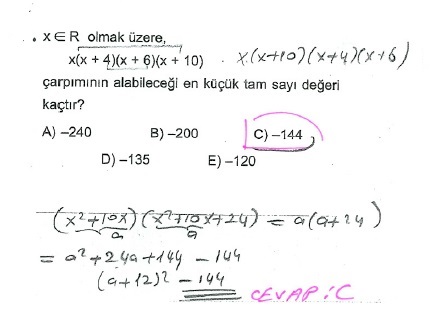 . x ∈ R olmak üzere,
x(x + 4)(x + 6)(x + 10) . x.(x+10)(x+4)(x+6)
çarpımının alabileceği en küçük tam sayı değeri
kaçtır?
A) –240 B) –200 C) –144
D) –135 E) –120
(x²+10x)(x²+10x+24) = a(a+24)
a a
= a²+24a+144 - 144
(a+12)² - 144
CEVAP : C